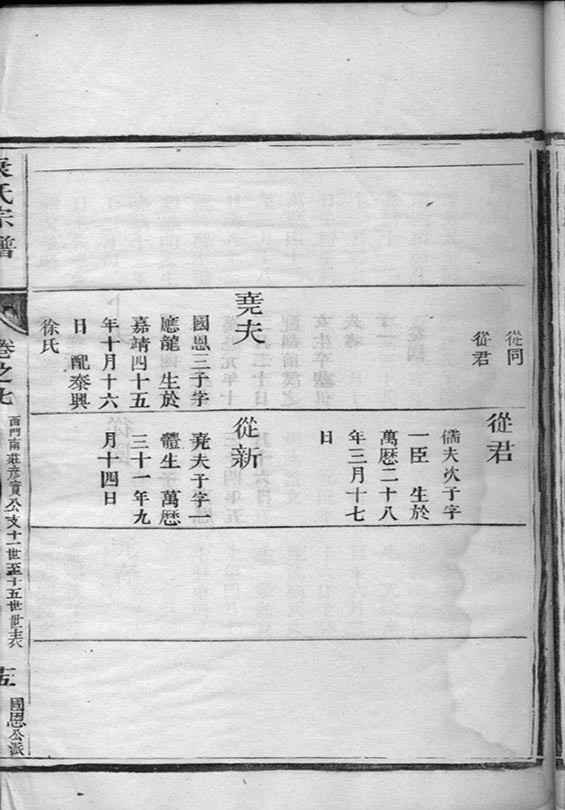 從同
從君
堯夫
國恩三子字
應龍 生於
嘉靖四十五
年十月十六
日 配泰興
徐氏
從君
儒夫次子字
一臣 生於
萬曆二十八
年三月十七
日
從新
堯夫子字一
體生 萬曆
三十一年九
月十四日
袁氏宗譜
卷之七
西門南莊彥實公支十一世至十五世世表
國恩公派